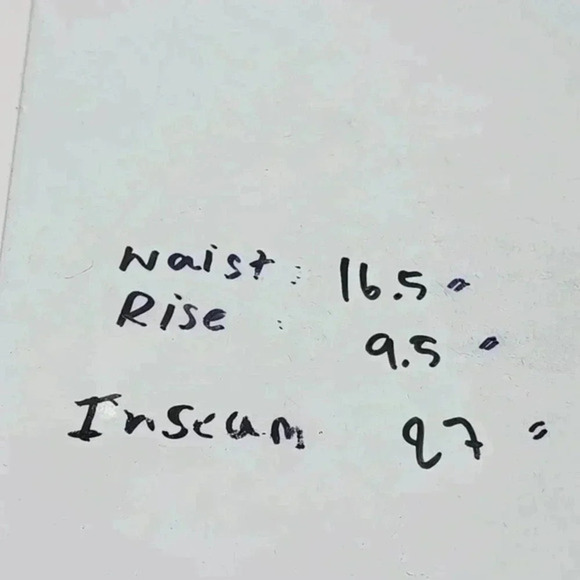 Waist: 16.5"
Rise : 9.5"
Inseam 27"